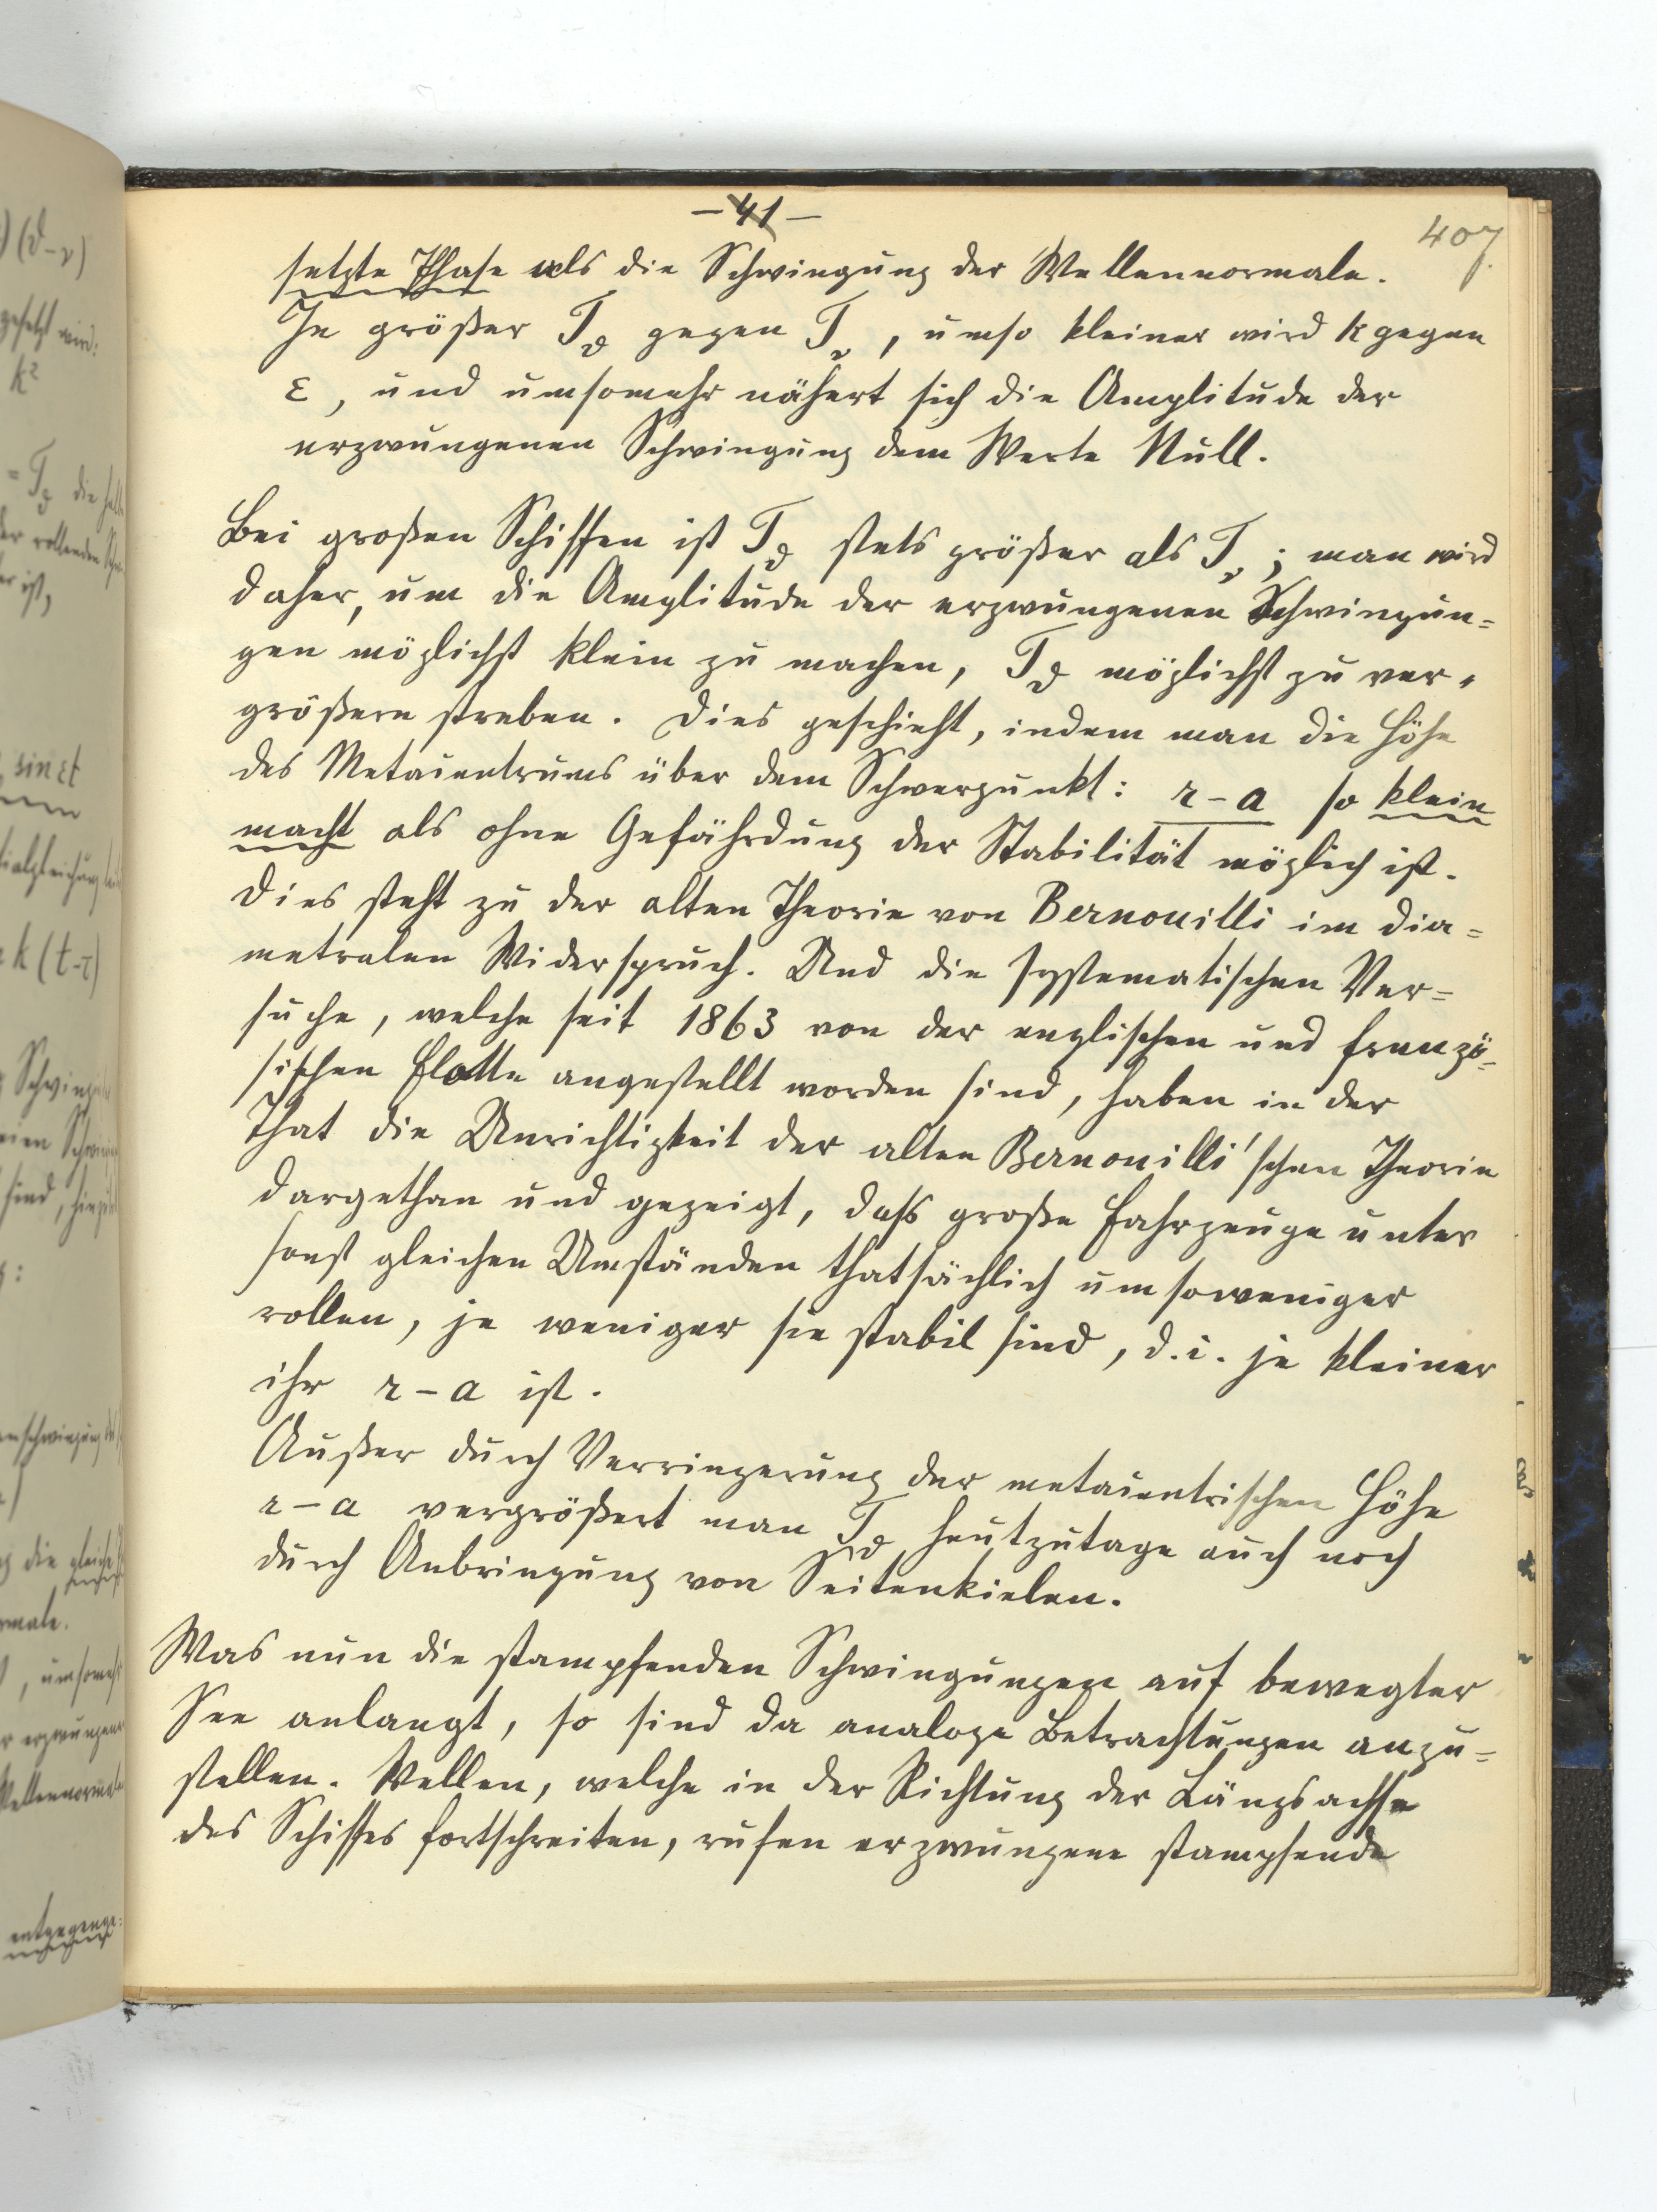 – 41 –
407.
setzte Phase als die Schwingung der Wellennormale.
Je größer T_ϑ gegen T_ν, umso kleiner wird k gegen
ε, und umsomehr nähert sich die Amplitude der
erzwungenen Schwingung dem Werte Null.
Bei großen Schiffen ist T_ϑ stets größer als T_ν; man wird
daher, um die Amplitude der erzwungenen Schwingun=
gen möglichst klein zu machen, T_ϑ möglichst zu ver=
größern streben. Dies geschieht, indem man die Höhe
des Metacentrums über dem Schwerpunkt: r – a so klein
macht als ohne Gefährdung der Stabilität möglich ist.
Dies steht zu der alten Theorie von Bernouilli im dia=
metralen Widerspruch. Und die systematischen Ver=
suche, welche seit 1863 von der englischen und franzö=
sischen Flotte angestellt worden sind, haben in der
That die Unrichtigkeit der alten Bernouilli'schen Theorie
dargethan und gezeigt, dass große Fahrzeuge unter
sonst gleichen Umständen thatsächlich umsoweniger
rollen, je weniger sie stabil sind, d.i. je kleiner
ihr r – a ist.
Außer durch Verringerung der metacentrischen Höhe
r – a vergrößert man T_ϑ heutzutage auch noch
durch Anbringung von Seitenkielen.
Was nun die stampfenden Schwingungen auf bewegter
See anlangt, so sind da analoge Betrachtungen anzu=
stellen. Wellen, welche in der Richtung der Längsachse
des Schiffes fortschreiten, rufen erzwungene stampfende